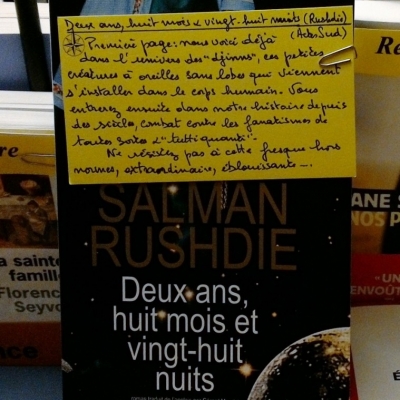 Deux ans, huit mois & vingt-huit nuits (Rushdie)
(Actes Sud)
Première page : nous voici déjà
dans l'univers des "djinns", ces petites
créatures à oreilles sans lobes qui viennent
s'installer dans le corps humain. Vous
entrerez ensuite dans notre histoire depuis
des siècles, combat contre les fanatismes de
toutes sortes & "tutti quanti".
Ne résistez pas à cette fresque hors
normes, extraordinaire, éblouissante...
SALMAN
RUSHDIE
Deux ans,
huit mois et
vingt-huit
nuits
re
a sainte
famille
Florence
Seyvo
nce
Re
ANE S
NOS P
"UN
ENVOÛT
É